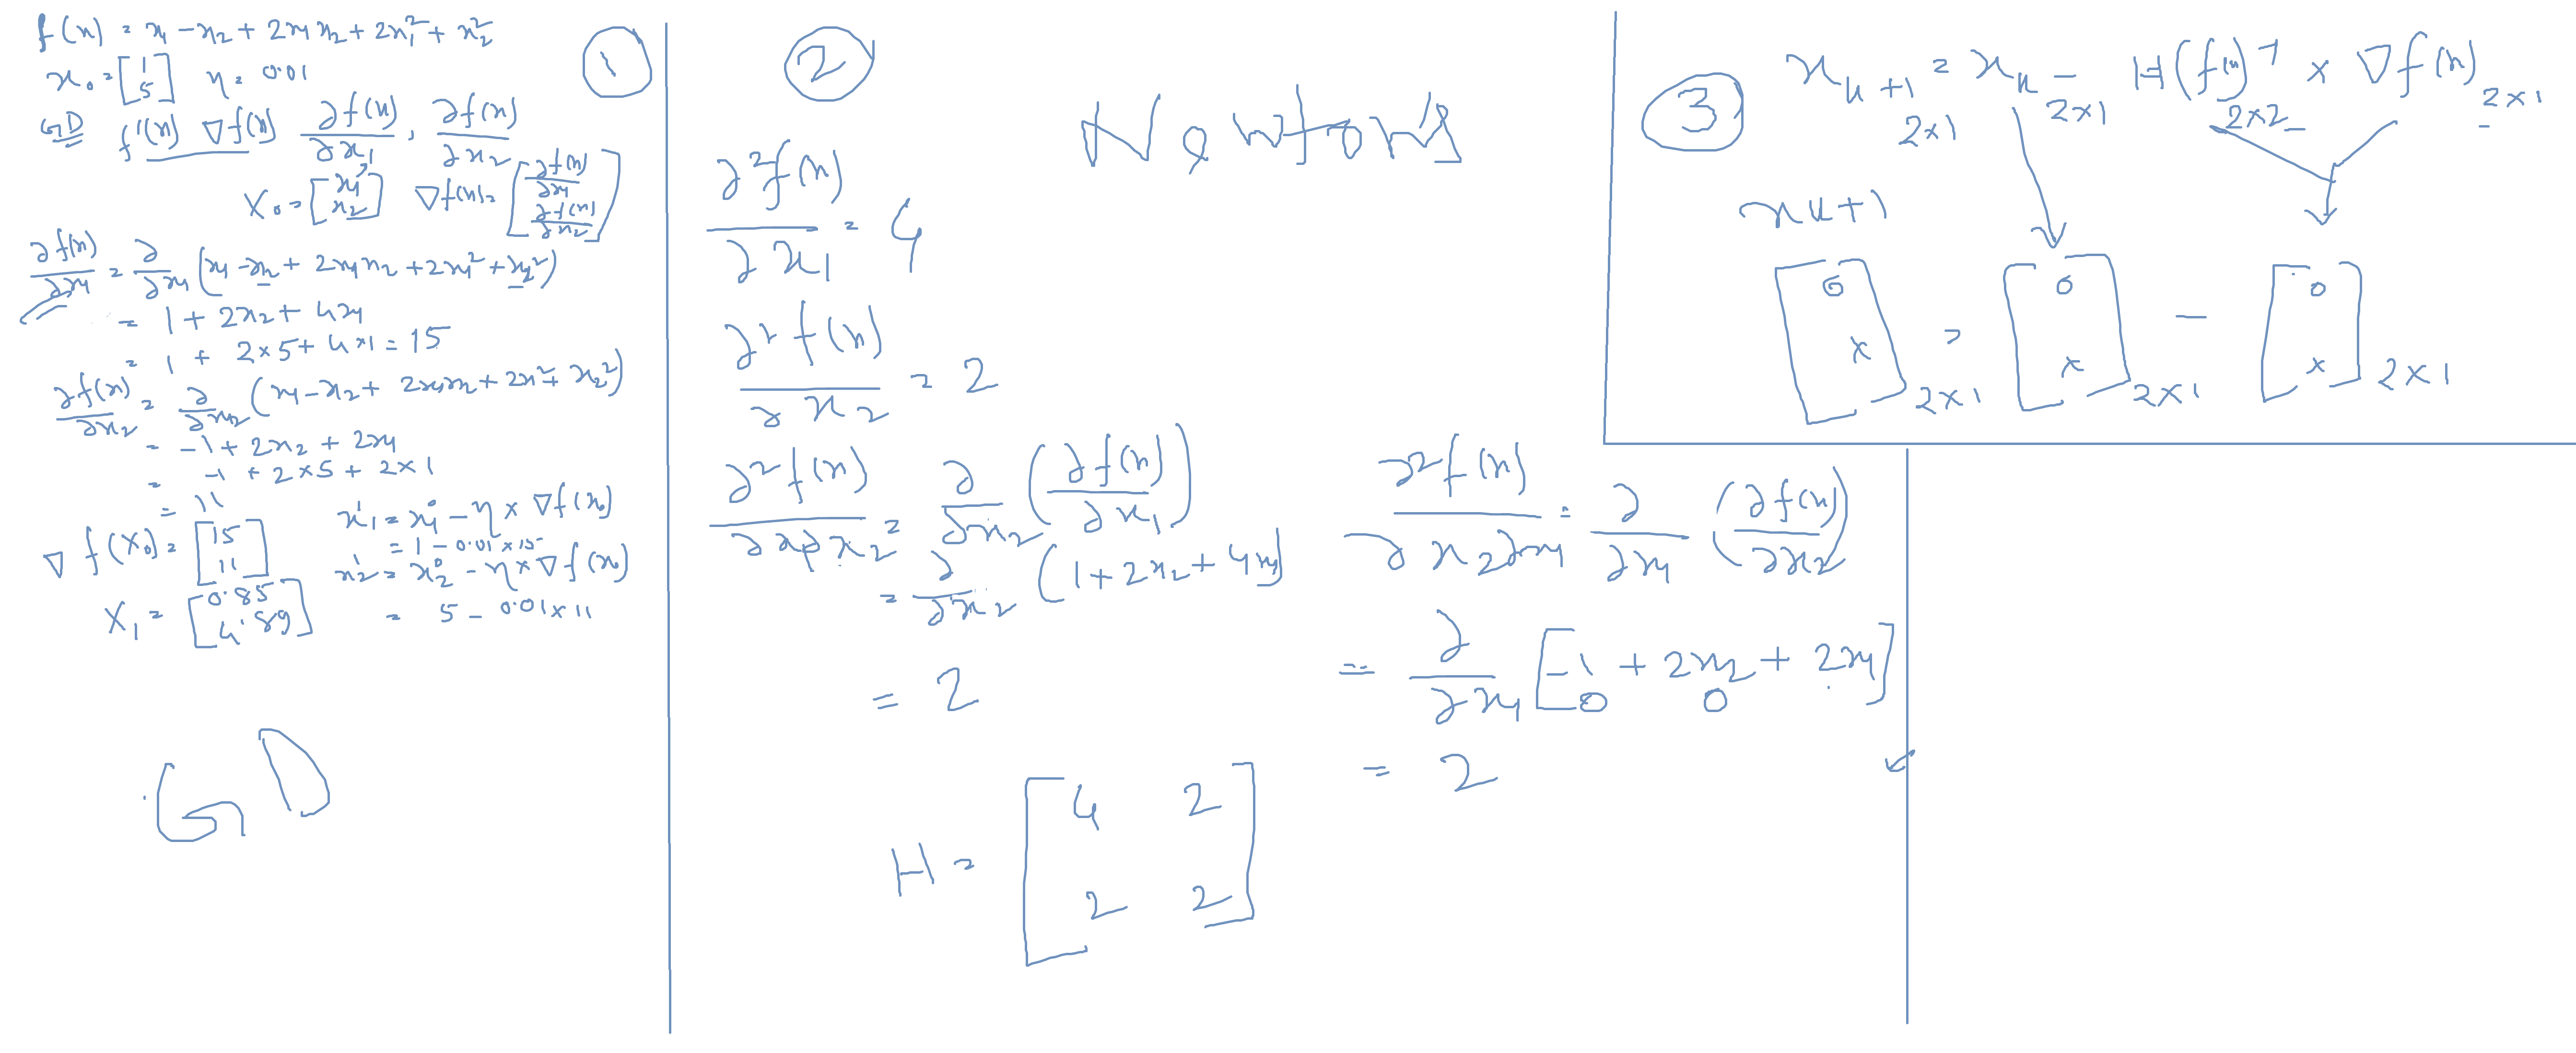 f(x) = x₁ - x₂ + 2x₁x₂ + 2x₁² + x₂²
x₀ = [1 5] η = 0.01
GD f'(x) ∇f(x) ∂f(x)/∂x₁, ∂f(x)/∂x₂
X₀ = [x₁ x₂] ∇f(x) = [∂f(x)/∂x₁ ∂f(x)/∂x₂]
∂f(x)/∂x₁ = ∂/∂x₁ (x₁ - x₂ + 2x₁x₂ + 2x₁² + x₂²)
= 1 + 2x₂ + 4x₁
= 1 + 2×5 + 4×1 = 15
∂f(x)/∂x₂ = ∂/∂x₂ (x₁ - x₂ + 2x₁x₂ + 2x₁² + x₂²)
= -1 + 2x₂ + 2x₁
= -1 + 2×5 + 2×1
= 11
∇f(X₀) = [15 11]
x₁¹ = x₁⁰ - η × ∇f(x₀)
= 1 - 0.01×15
x₂¹ = x₂⁰ - η × ∇f(x₀)
= 5 - 0.01×11
X₁ = [0.85 4.89]
GD
①
②
Newtons
∂²f(x)/∂x₁ = 4
∂²f(x)/∂x₂ = 2
∂²f(x)/∂x₁∂x₂ = ∂/∂x₂ (∂f(x)/∂x₁)
= ∂/∂x₂ (1 + 2x₂ + 4x₁)
= 2
∂²f(x)/∂x₂∂x₁ = ∂/∂x₁ (∂f(x)/∂x₂)
= ∂/∂x₁ [-1 + 2x₂ + 2x₁]
0 0
= 2
H = [4 2
2 2]
③
xₖ₊₁ = xₖ - H(f(x))⁻¹ × ∇f(x)
2×1 2×1 2×2 2×1
xₖ₊₁
[0 x] 2×1 = [0 x] 2×1 - [0 x] 2×1